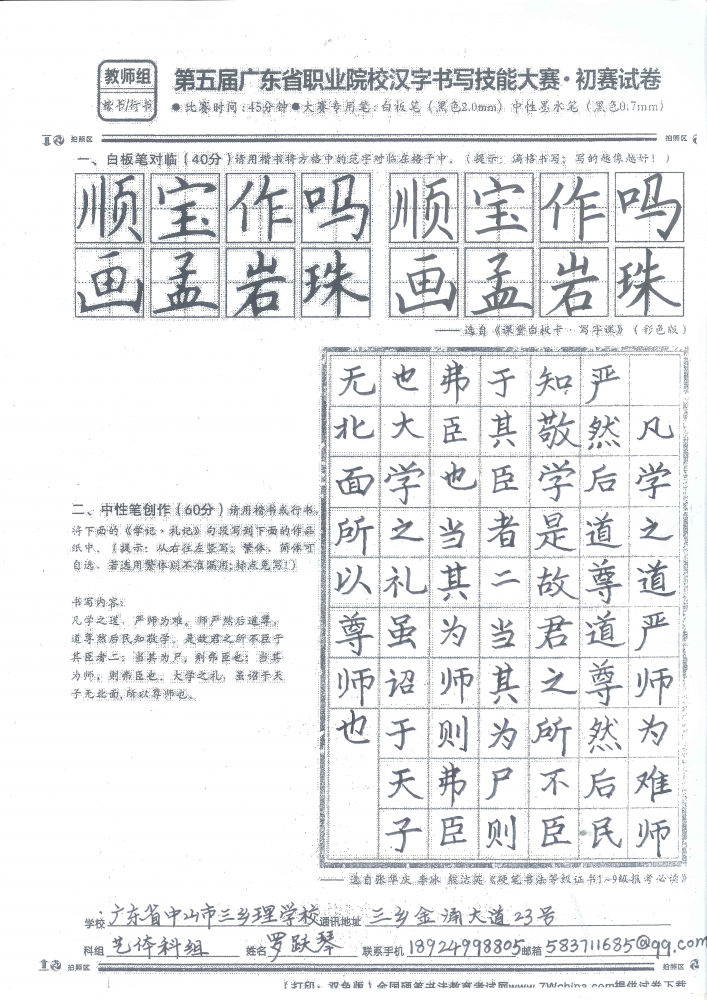 教师组
楷书/行书
第五届广东省职业院校汉字书写技能大赛·初赛试卷
●比赛时间:45分钟●大赛专用笔:白板笔(黑色2.0mm) 中性墨水笔(黑色0.7mm)
拍照区 拍照区
一、白板笔对临(40分)请用楷书将方格中的范字对临在格子中。(提示:满格书写;写的越像越好!)
顺宝作吗 顺宝作吗
画孟岩珠 画孟岩珠
——选自《课堂白板卡·写字课》(彩色版)
二、中性笔创作(60分)请用楷书或行书,
将下面的《学记·礼记》句段写到下面的作品
纸中。(提示:从右往左竖写;繁体、简体可
自选,若选用繁体则不准漏用;标点免写!)
书写内容:
凡学之道,严师为难。师严然后道尊,
道尊然后民知敬学。是故君之所不臣于
其臣者二:当其为尸,则弗臣也;当其
为师,则弗臣也。大学之礼,虽诏于天
子无北面,所以尊师也。
凡学之道严师为难师
严然后道尊道尊然后民
知敬学是故君之所不臣
于其臣者二当其为尸则
弗臣也当其为师则弗臣
也大学之礼虽诏于天子
无北面所以尊师也
——选自张华庆 李冰 熊洁英《硬笔书法等级证书1~9级报考必读》
学校 广东省中山市三乡理学校 通讯地址 三乡金涌大道23号
科组 艺体科组 姓名 罗跃琴 联系手机 18924998805 邮箱 583711685@qq.com
拍照区 拍照区
(打印:双色版)全国硬笔书法教育考试网www.7Wchina.com提供试卷下载